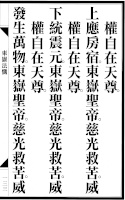 權自在天尊
上應房宿東嶽聖帝慈光救苦威
權自在天尊
下統震元東嶽聖帝慈光救苦威
權自在天尊
發生萬物東嶽聖帝慈光救苦威
東嶽法懺